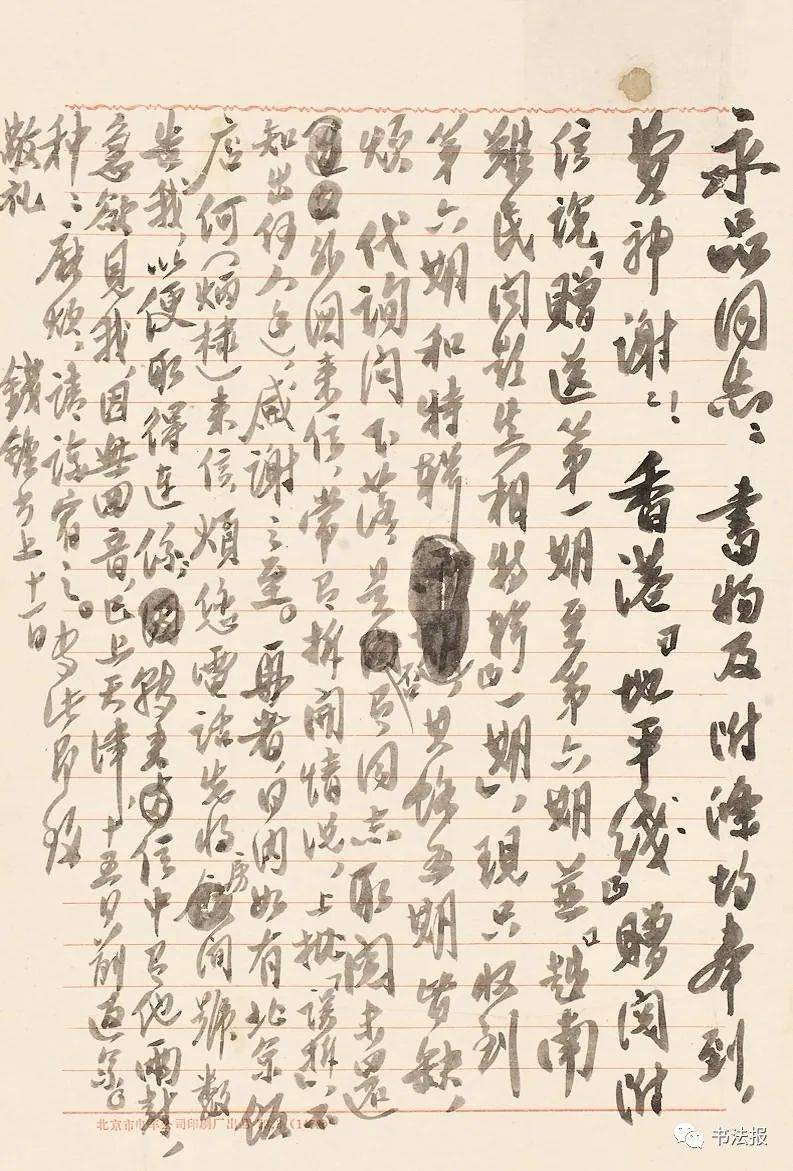 永品同志：书物及附条均奉到，
费神谢谢！香港「地平线」赠阅附
信说，「赠送第一期至第六期并「越南
难民问题真相特辑」一期」，现只收到
第六期和特辑，其余五期皆缺，
烦 代询问下落是否有同志取阅未还
外国来信，常有拆开情况，上批「误拆」，不
知出何人手，感谢之至。再者，日内如有北京饭
店何（炳棣）来信，烦您电话先将房间号数
告我，以便取得连系；信中有他两封，
急欲见我，因无回音，已上天津，十五日前返京。
种种麻烦，请谅宥之。专此即致
敬礼 钱锺书上 十一日
北京市电车公司印刷厂出品
书法报